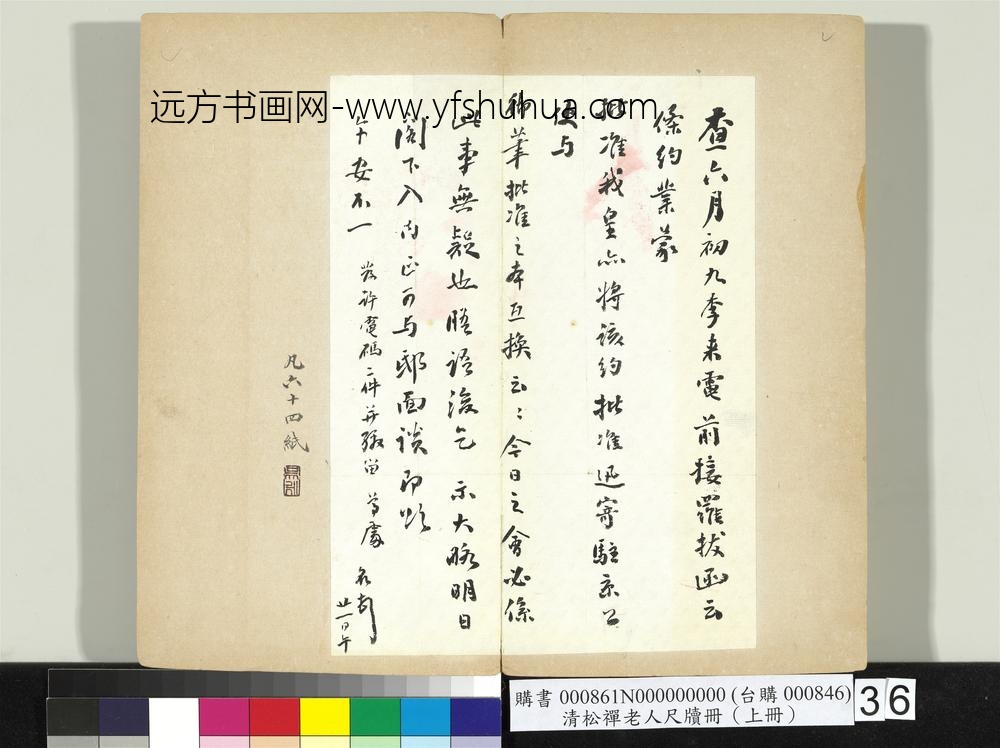 查六月初九李来電前接羅拔函云
條約業蒙
批准我皇亦將該約批准迅寄駐京公
使与
御筆批准之本互換云：今日之會必係
此事無疑也晤語後乞 示大略明日
閣下入内正可与邸面談即頌
午安不一 發許電碼二件并繳 留 尊處 名
廿一日午
凡六十四紙
远方书画网-www.yfshuhua.com
購書 000861N000000000 (台購 000846)
清松禪老人尺牘冊（上冊）
36